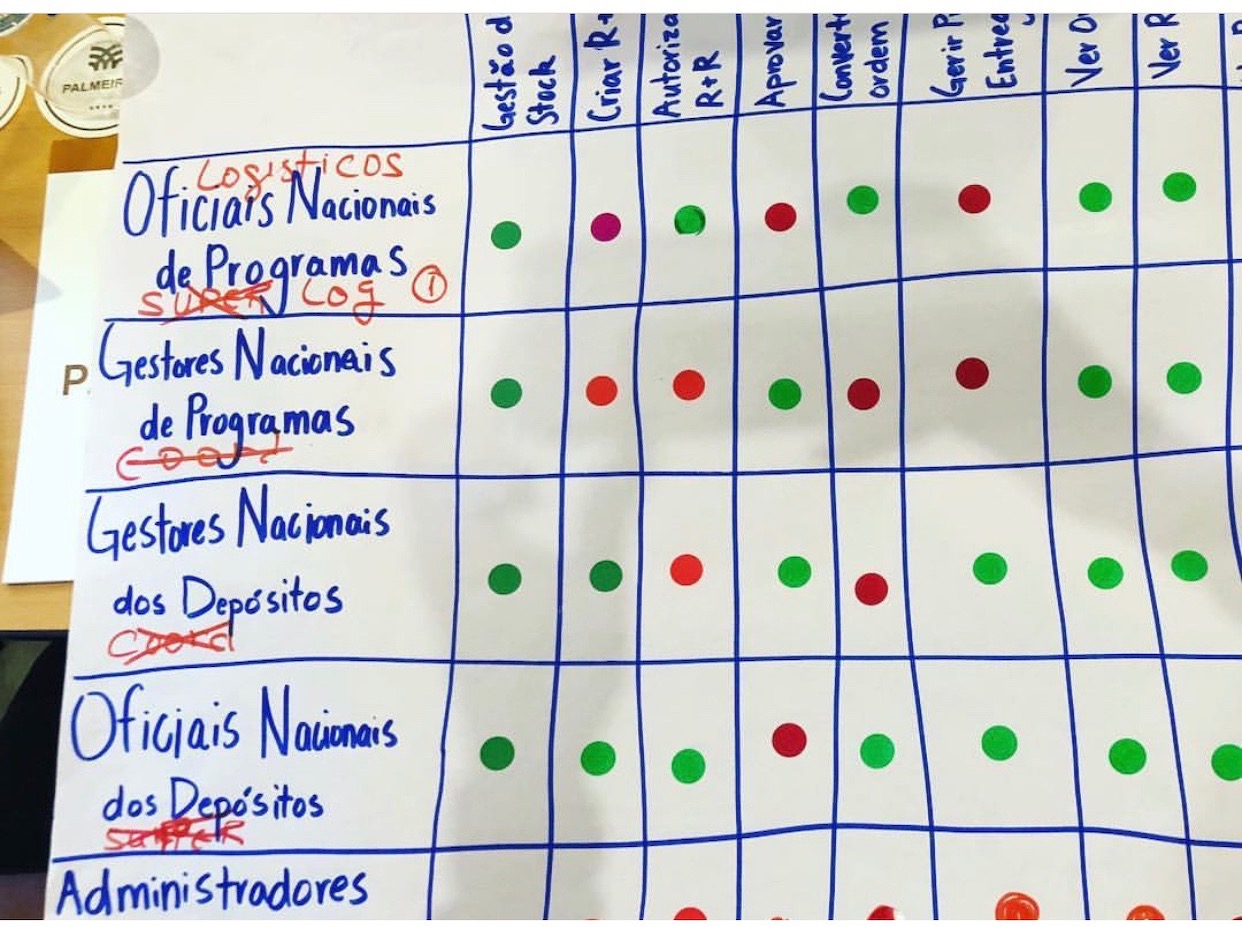 PALMEIR
P
Gestão d
Stock
Criar R+
Autoriza
R+R
Aprovar
Convert
ordem
Gerir P
Entreg
Ver O
Ver R
LOGISTICOS
Oficiais Nacionais
de Programas
SUPER LOG 1
Gestores Nacionais
de Programas
COORD
Gestores Nacionais
dos Depósitos
COORD
Oficiais Nacionais
dos Depósitos
SUPER
Administradores